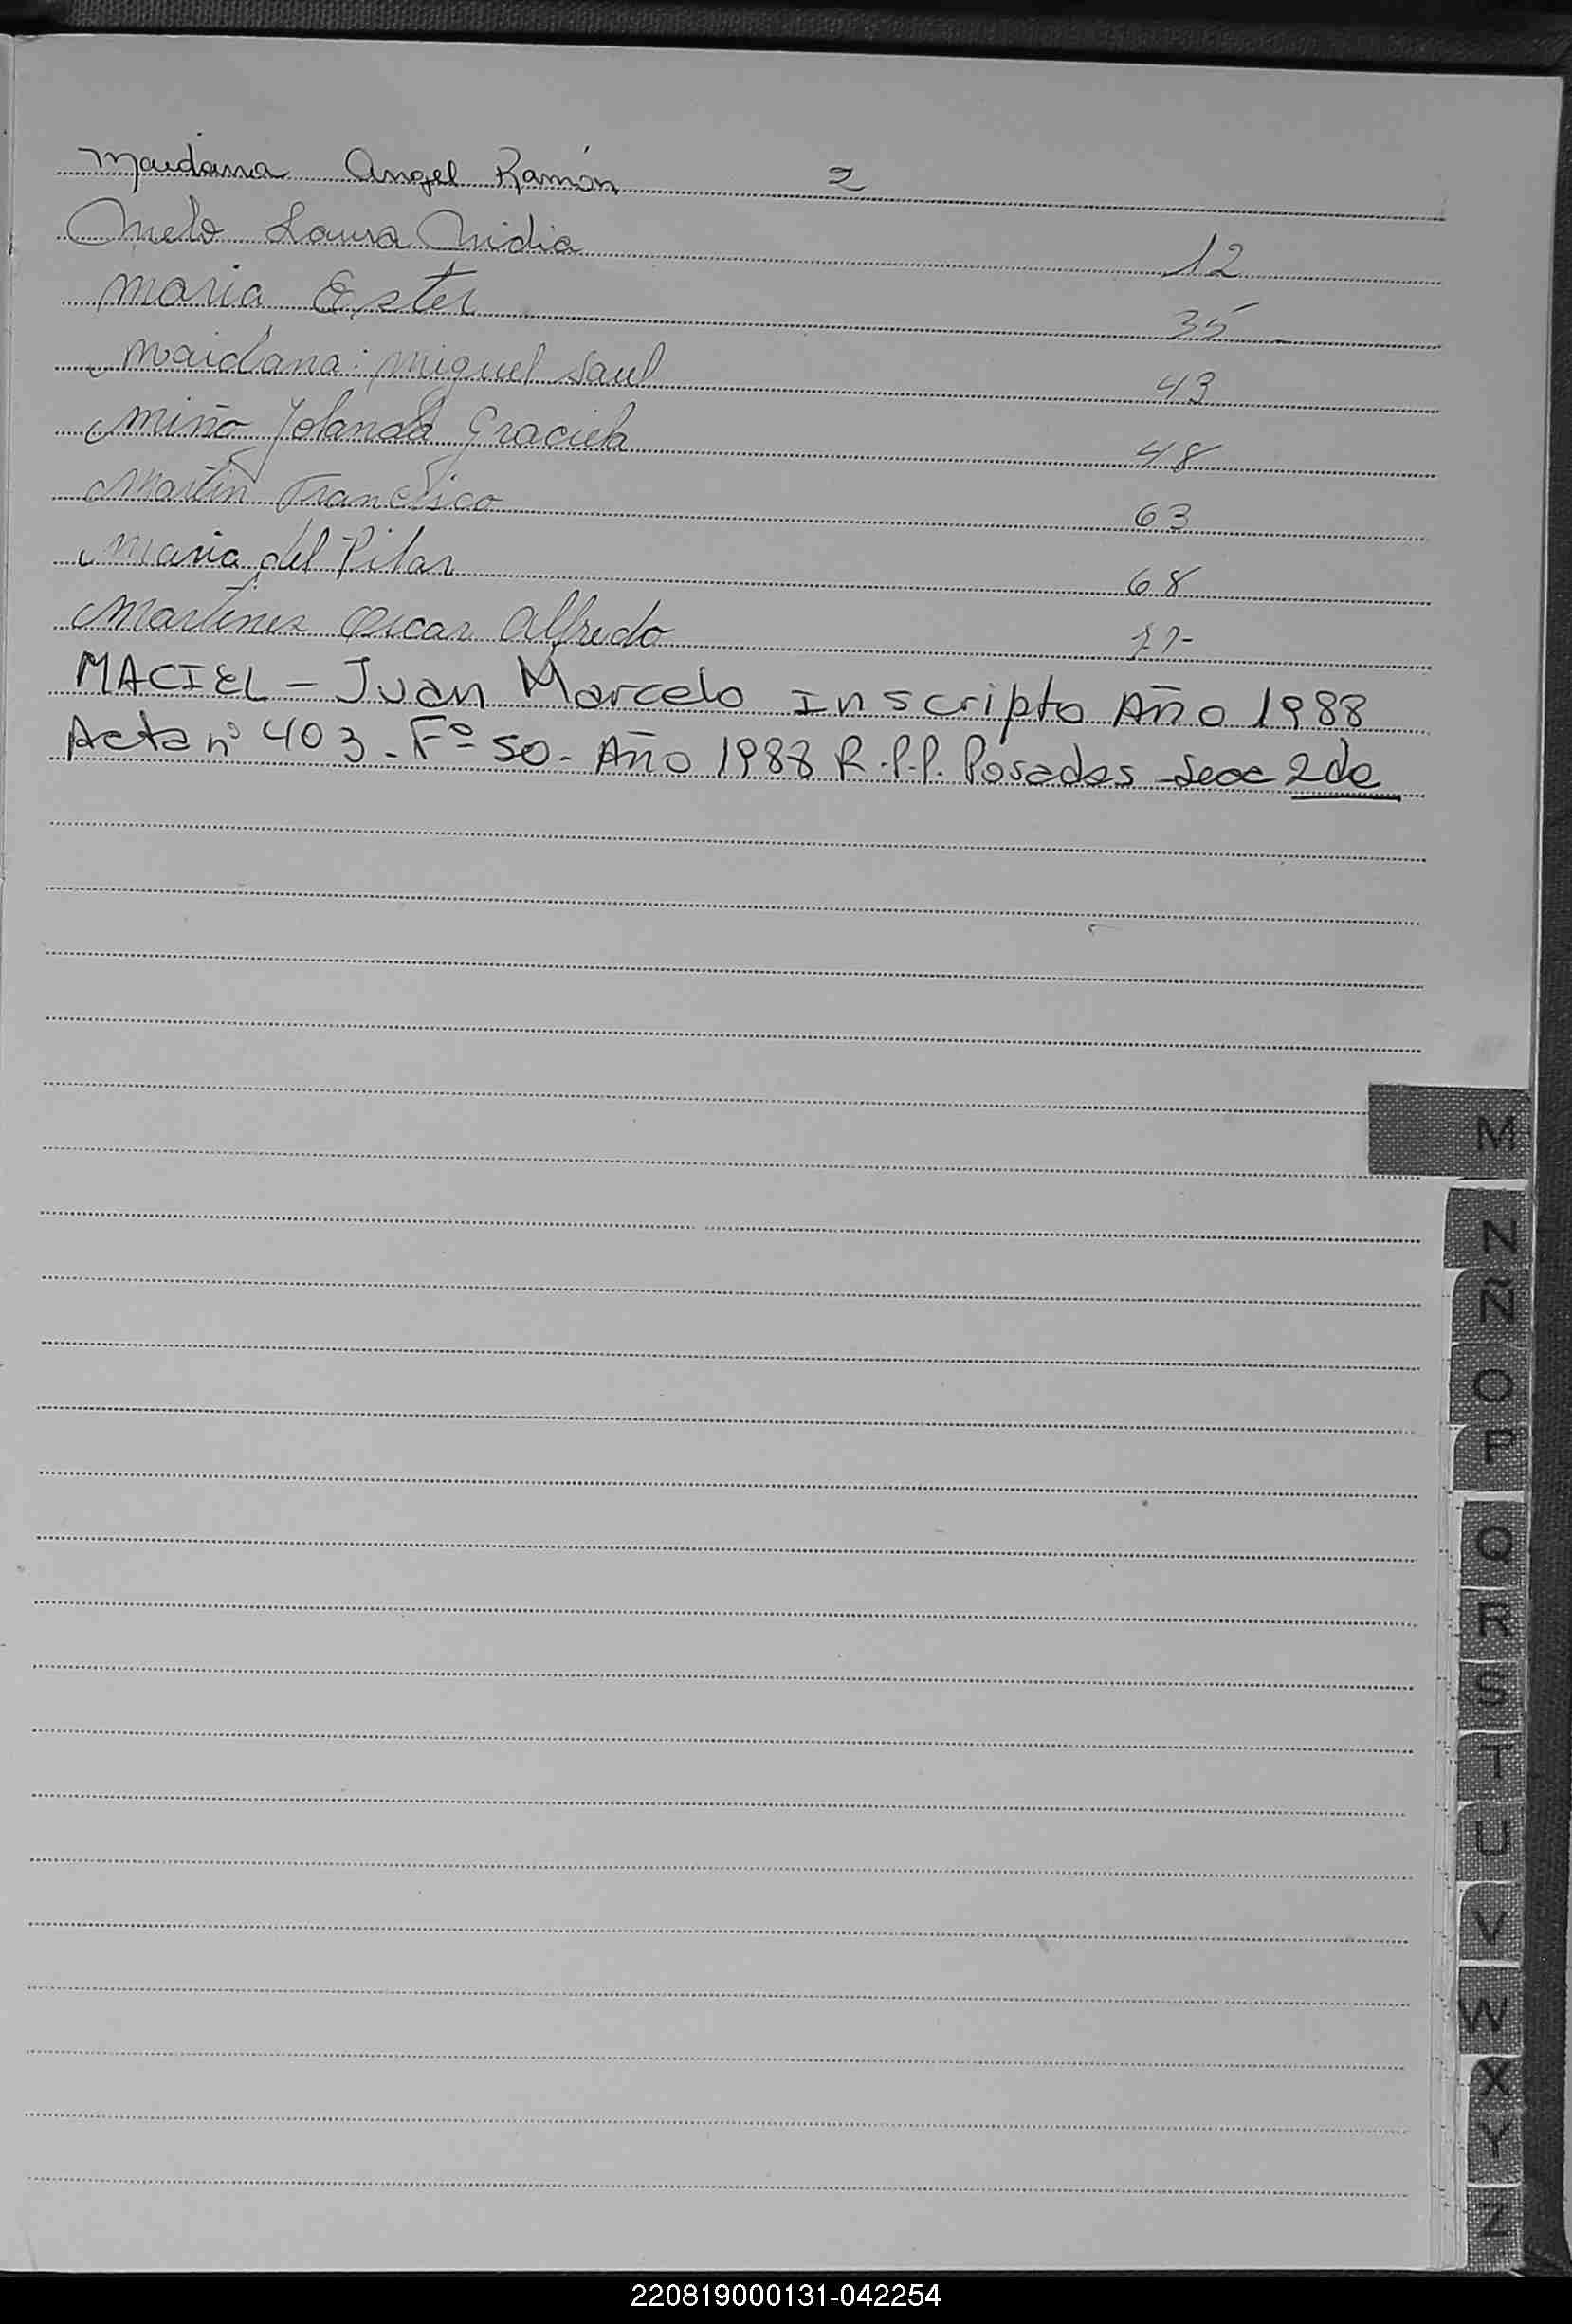 Maidana Angel Ramón 2
Melo Laura Nidia 12
Maria Ester 35
Maidana: Miguel Saul 43
Miño Yolanda Graciela 48
Martin Francisco 63
Maria del Pilar 68
Martinez Oscar Alfredo
MACIEL - Juan Marcelo Inscripto Año 1988
Acta nº 403 - Fº 50 - Año 1988 R.P.P. Posadas 2da
M
N
Ñ
O
P
Q
R
S
T
U
V
W
X
Y
Z
220819000131-042254